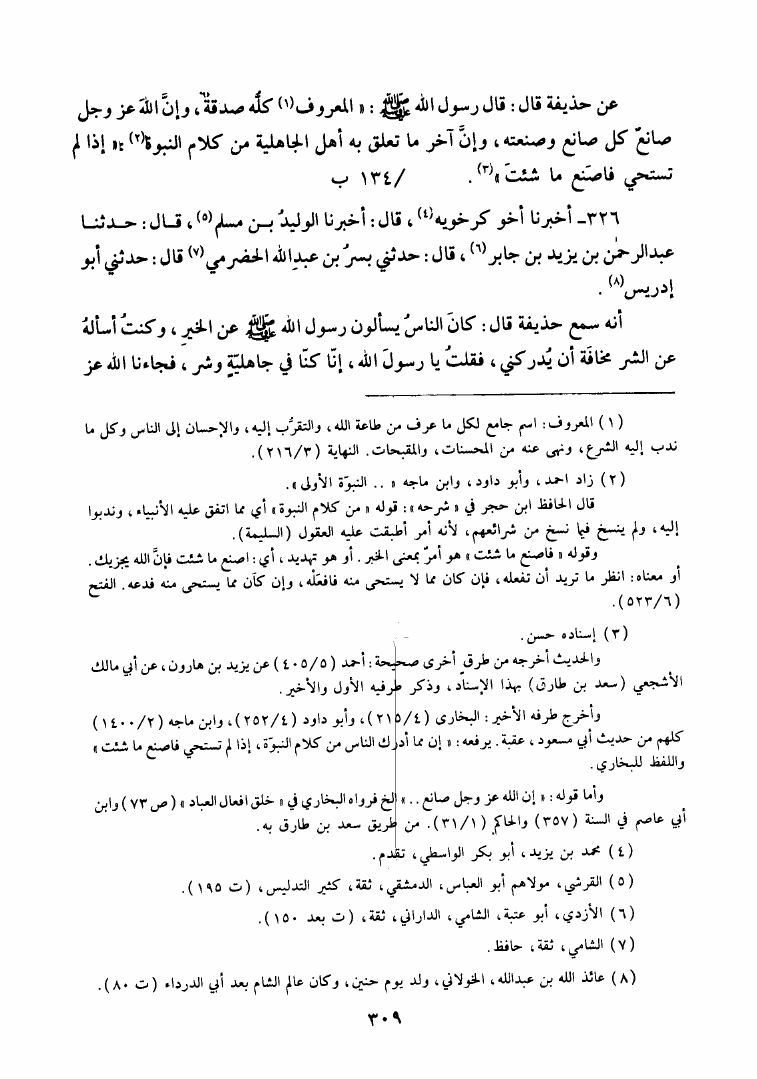 عن حذيفة قال: قال رسول الله ﷺ: « المعروف(١) كلُّه صدقةٌ، وإنَّ اللهَ عز وجل
صانعٌ كل صانع وصنعته، وإنَّ آخر ما تعلق به أهل الجاهلية من كلام النبوة(٢): « إذا لم
تستحي فاصنع ما شئتَ »(٣). /١٣٤ ب
٣٢٦ـ أخبرنا أخو كرخويه(٤)، قال: أخبرنا الوليدُ بـن مسلم(٥)، قـال: حـدثنـا
عبدالرحمٰن بن يزيد بن جابر(٦)، قال: حدثني بسرُ بن عبدِالله الحضرمي(٧) قال: حدثني أبو
إدريس(٨).
أنه سمع حذيفة قال: كانَ الناسُ يسألون رسول الله ﷺ عن الخيرِ، وكنتُ أسألهُ
عن الشر مخافَة أن يُدركني، فقلتُ يا رسولَ الله، إنّا كنّا في جاهليّةٍ وشر، فجاءنا الله عز
(١) المعروف: اسم جامع لكل ما عرف من طاعة الله، والتقرُّب إليه، والإحسان إلى الناس وكل ما
ندب إليه الشرع، ونهى عنه من المحسنات، والمقبحات. النهاية (٢١٦/٣).
(٢) زاد احمد، وأبو داود، وابن ماجه « .. النبوّة الأولى ».
قال الحافظ ابن حجر في « شرحه »: قوله « من كلام النبوة » أي مما اتفق عليه الأنبياء، وندبوا
إليه، ولم ينسخ فيما نسخ من شرائعهم، لأنه أمر أطبقت عليه العقول (السليمة).
وقوله « فاصنع ما شئت » هو أمرٌ بمعنى الخبر. أو هو تهديد، أي: اصنع ما شئت فإنَّ الله يجزيك.
أو معناه: انظر ما تريد أن تفعله، فإن كان مما لا يستحى منه فافعَلْه، وإن كان مما يستحى منه فدعه. الفتح
(٥٢٣/٦).
(٣) إسناده حسن.
والحديث أخرجه من طرقٍ أخرى صحيحة: أحمد (٤٠٥/٥) عن يزيد بن هارون، عن أبي مالك
الأشجعي (سعد بن طارق) بهذا الإسناد، وذكر طرفيه الأول والأخير.
وأخرج طرفه الأخير: البخارى (٢١٥/٤)، وأبو داود (٢٥٢/٤)، وابن ماجه (١٤٠٠/٢)
كلهم من حديث أبي مسعود، عقبة. يرفعه: « إن مما أدرك الناس من كلام النبوّة، إذا لم تستحي فاصنع ما شئت »
واللفظ للبخاري.
وأما قوله: « إن الله عز وجل صانع .. » إلخ فرواه البخاري في « خلق افعال العباد » (ص ٧٣) وابن
أبي عاصم في السنة (٣٥٧) والحاكم (٣١/١). من طريق سعد بن طارق به.
(٤) محمد بن يزيد، أبو بكر الواسطي، تقدم.
(٥) القرشي، مولاهم أبو العباس، الدمشقي، ثقة، كثير التدليس، (ت ١٩٥).
(٦) الأزدي، أبو عتبة، الشامي، الداراني، ثقة، (ت بعد ١٥٠).
(٧) الشامي، ثقة، حافظ.
(٨) عائذ الله بن عبدالله، الخولاني، ولد يوم حنين، وكان عالم الشام بعد أبي الدرداء (ت ٨٠).
٣٠٩